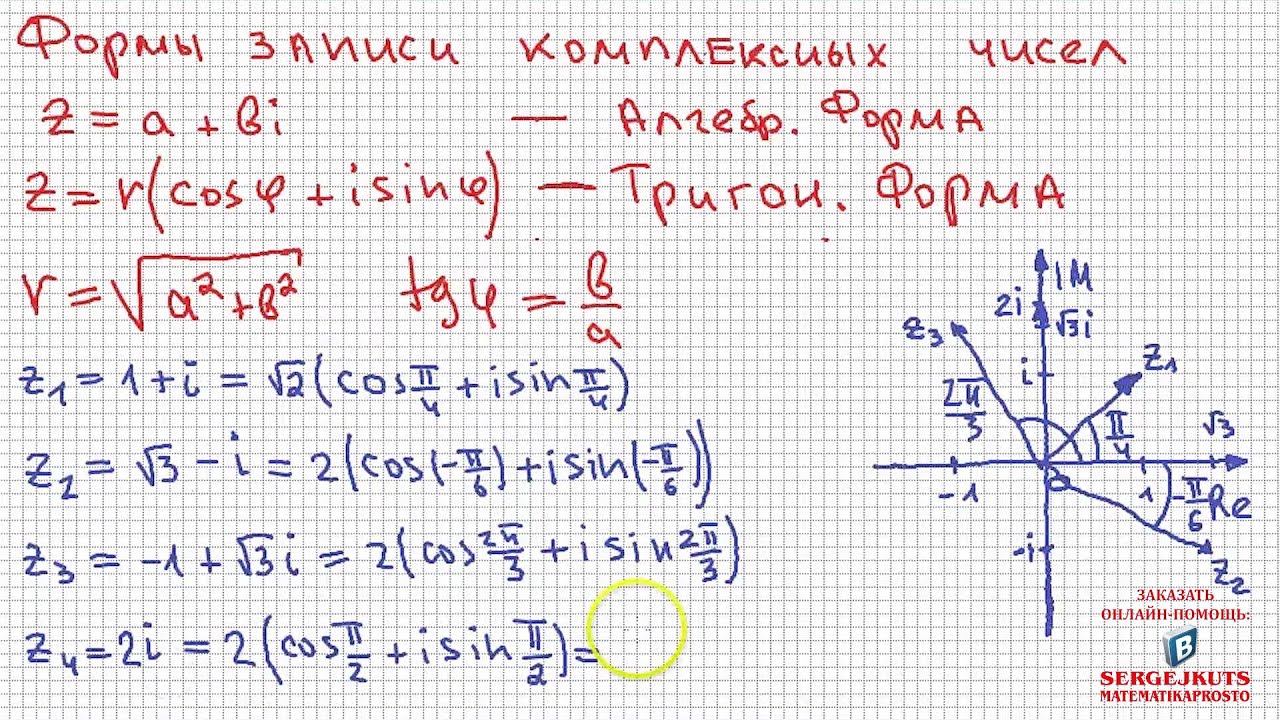 Формы записи комплексных чисел
z = a + bi — Алгебр. Форма
z = r(cosφ + i sinφ) — Тригон. Форма
r = √(a² + b²) tgφ = b/a
z₁ = 1 + i = √2(cos π/4 + i sin π/4)
z₂ = √3 − i = 2(cos(−π/6) + i sin(−π/6))
z₃ = −1 + √3i = 2(cos 2π/3 + i sin 2π/3)
z₄ = 2i = 2(cos π/2 + i sin π/2) =
IM
2i
√3i
z₃
z₁
i
2π/3
π/4
√3
−1
1
−π/6
Re
0
−i
z₂
ЗАКАЗАТЬ
ОНЛАЙН-ПОМОЩЬ:
B
SERGEJKUTS
MATEMATIKAPROSTO